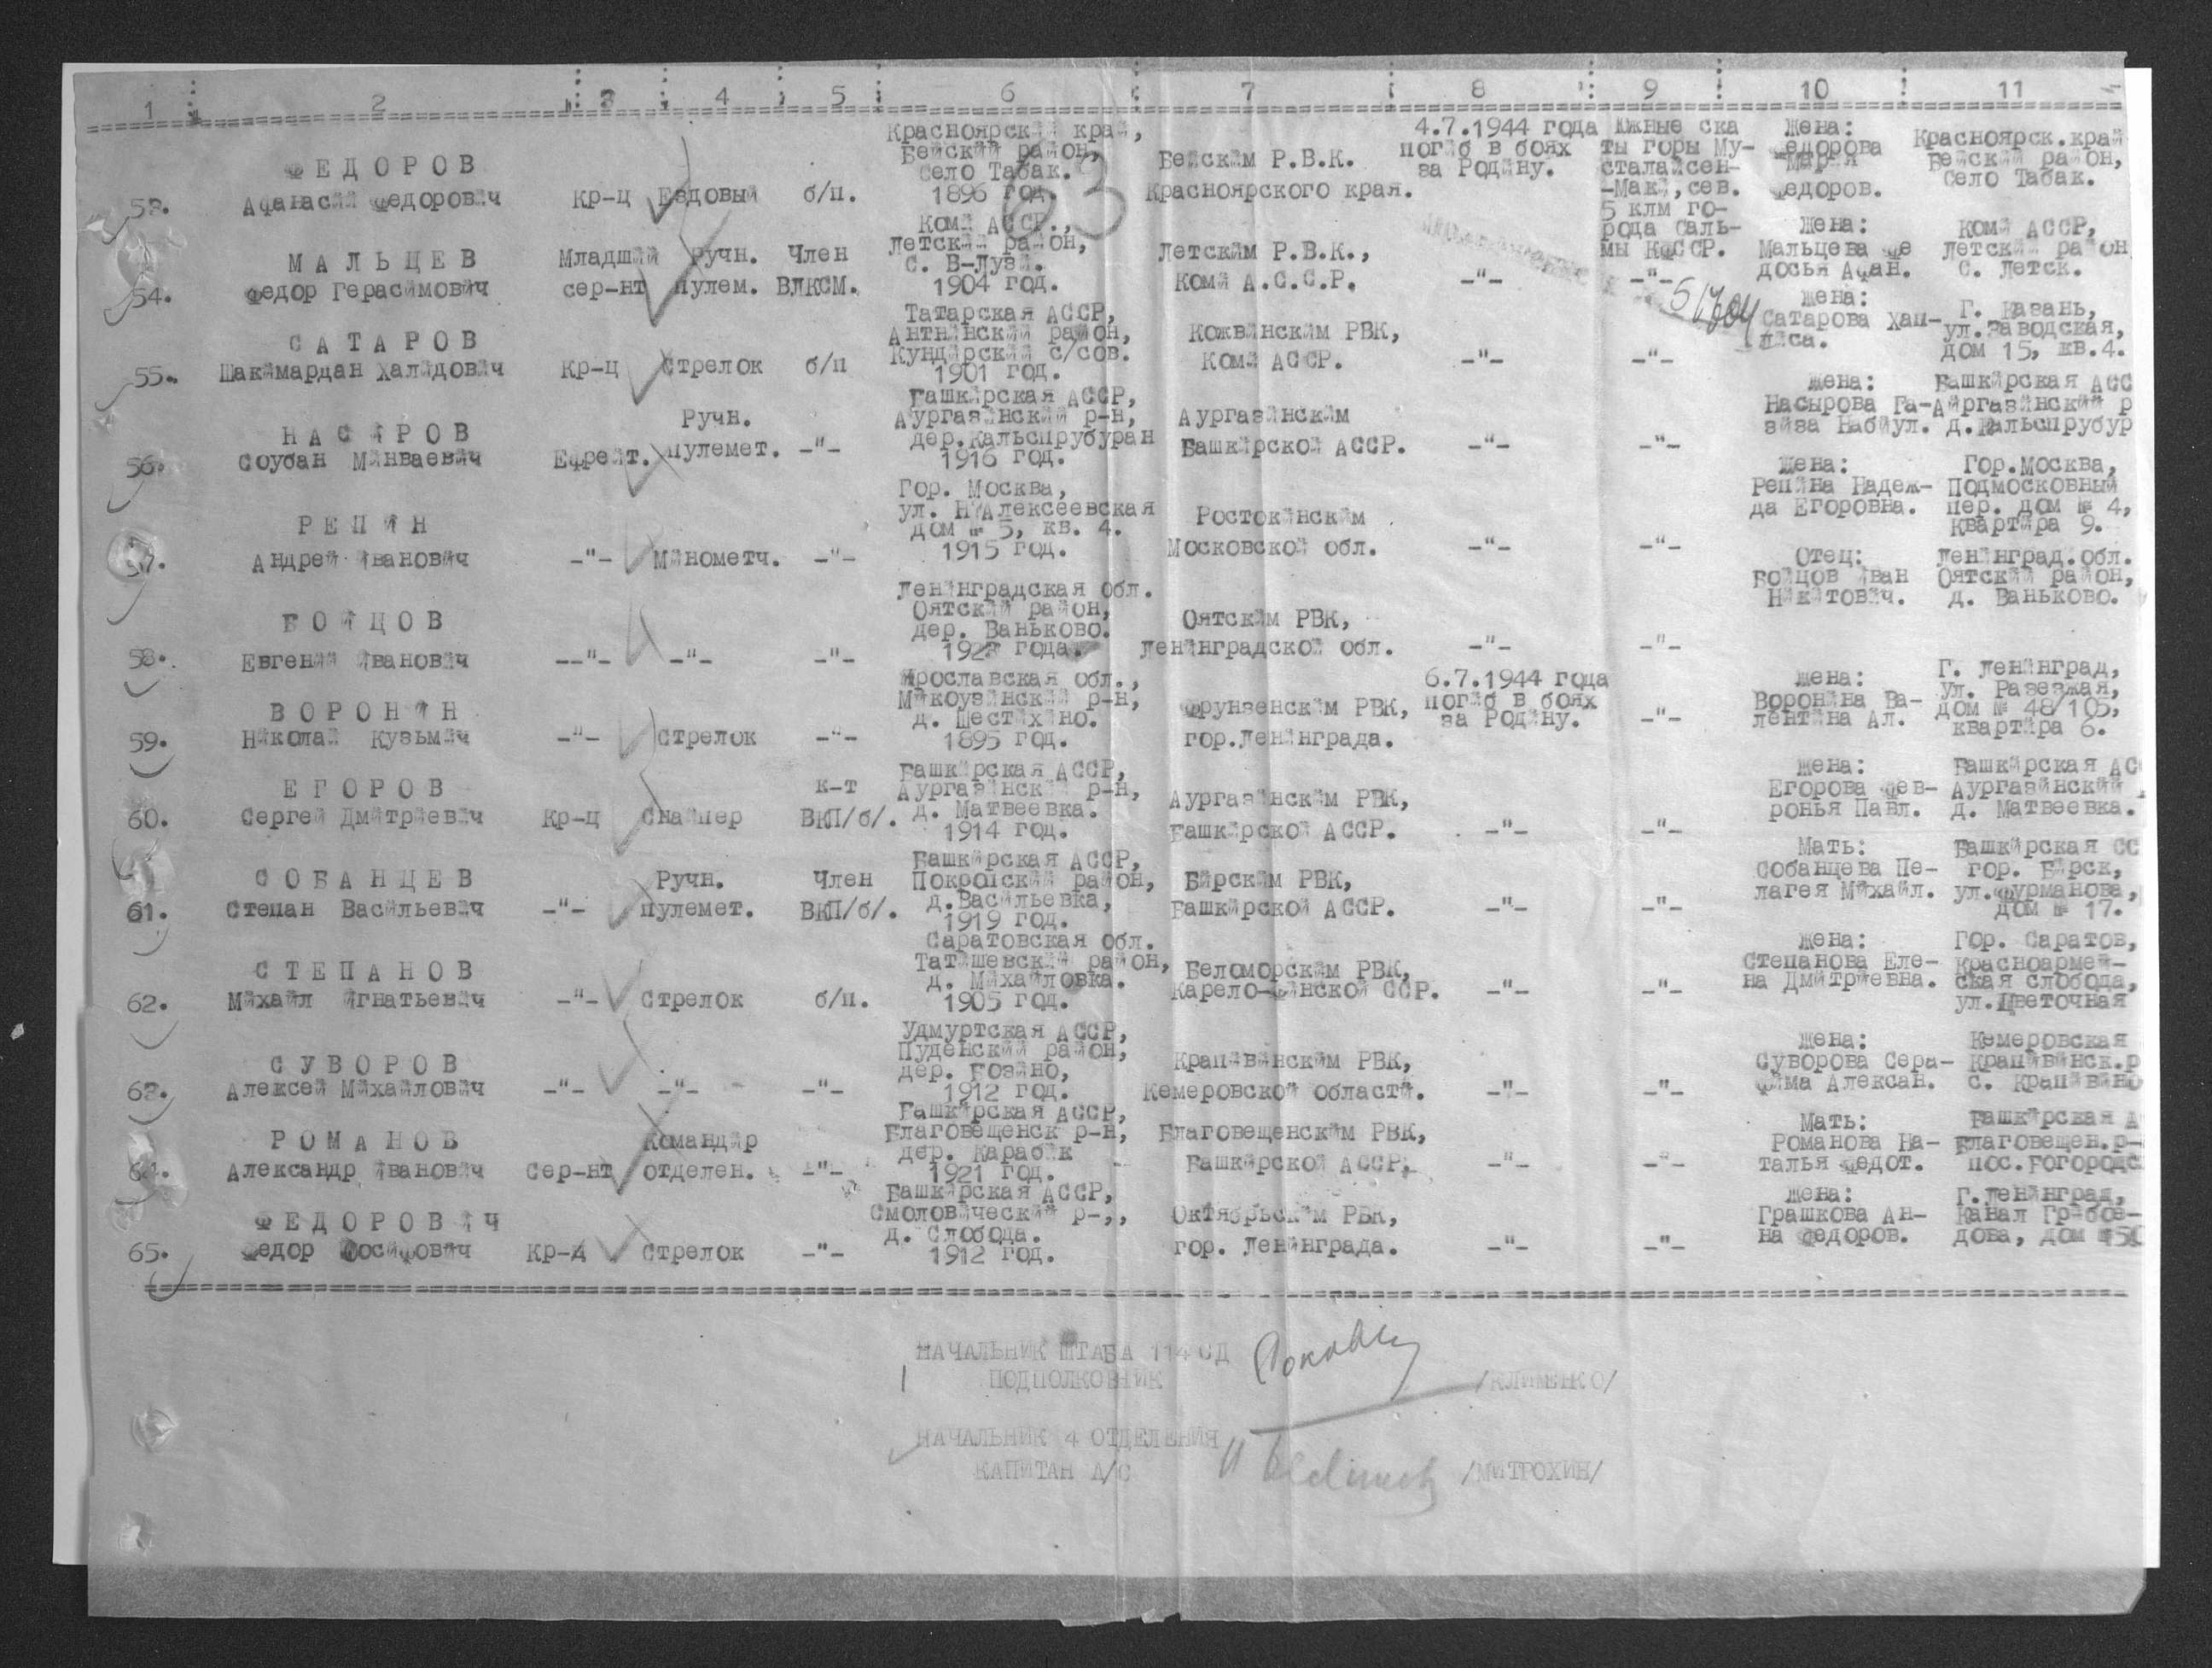 1 2 3 4 5 6 7 8 9 10 11
53. ФЕДОРОВ
Афанасий Федорович
Кр-ц Ездовый б/п.
Красноярский край,
Бейский район,
Село Табак.
1896 год.
Бейским Р.В.К.
Красноярского края.
4.7.1944 года
погиб в боях
за Родину.
Южные ска
ты горы Му-
сталайсен-
-Маки, сев.
5 клм го-
рода Саль-
мы КФССР.
Жена:
Федорова
Мария
Федоров.
Красноярск.край
Бейский район,
Село Табак.
54. МАЛЬЦЕВ
Федор Герасимович
Младший
сер-нт
Ручн.
пулем.
Член
ВЛКСМ.
Коми АССР.,
Летский район,
с. В-Лузи.
1904 год.
Летским Р.В.К.,
Коми А.С.С.Р.
-"- -"-
Жена:
Мальцева Фе
досья Афан.
Коми АССР,
Летский район
С. Летск.
55. САТАРОВ
Шакимардан Халидович
Кр-ц Стрелок б/п
Татарская АССР,
Антнинский район,
Кундирский с/сов.
1901 год.
Кожвинским РВК,
Коми АССР.
-"- -"-
Жена:
Сатарова Хап-
иса.
Г. Казань,
ул.Заводская,
дом 15, кв.4.
56. НАСИРОВ
Соубан Минваевич
Ефрейт.
Ручн.
пулемет. -"-
Башкирская АССР,
Аургазинский р-н,
дер.Кальспрубуран
1916 год.
Аургазинским
Башкирской АССР.
-"- -"-
Жена:
Насырова Га-
зиза Набиул.
Башкирская АСС
Айргазинский р
д.Кальспрубур
57. РЕПИН
Андрей Иванович
-"- Минометч. -"-
Гор. Москва,
ул. Н/Алексеевская
дом № 5, кв. 4.
1915 год.
Ростокинским
Московской обл.
-"- -"-
Жена:
Репина Надеж-
да Егоровна.
Гор.Москва,
Подмосковный
пер. дом № 4,
квартира 9.
58. БОЙЦОВ
Евгений Иванович
--"- -"- -"-
Ленинградская обл.
Оятский район,
дер. Ваньково.
года.
Оятским РВК,
Ленинградской обл.
-"- -"-
Отец:
Бойцов Иван
Никитович.
Ленинград.обл.
Оятский район,
д. Ваньково.
59. ВОРОНИН
Николай Кузьмич
-"- Стрелок -"-
Ярославская обл.,
Микоузинский р-н,
д. Шестихино.
1895 год.
Фрунзенским РВК,
гор.Ленинграда.
6.7.1944 года
погиб в боях
за Родину.
-"-
Жена:
Воронина Ва-
лентина Ал.
Г. Ленинград,
ул. Разезжая,
дом № 48/105,
квартира 6.
60. ЕГОРОВ
Сергей Дмитриевич
Кр-ц Снайпер
к-т
ВКП/б/.
Башкирская АССР,
Аургазинский р-н,
д. Матвеевка.
1914 год.
Аургазинским РВК,
Башкирской АССР.
-"- -"-
Жена:
Егорова Фев-
ронья Павл.
Башкирская АС
Аургазинский
д. Матвеевка.
61. СОБАНЦЕВ
Степан Васильевич
-"-
Ручн.
пулемет.
Член
ВКП/б/.
Башкирская АССР,
Покропский район,
д.Васильевка,
1919 год.
Бирским РВК,
Башкирской АССР.
-"- -"-
Мать:
Собанцева Пе-
лагея Михайл.
Башкирская СС
гор. Бирск,
ул.Фурманова,
дом № 17.
62. СТЕПАНОВ
Михаил Игнатьевич
-"- Стрелок б/п.
Саратовская обл.
Татишевский район,
д. Михайловка.
1905 год.
Беломорским РВК,
Карело-Финской ССР.
-"- -"-
Жена:
Степанова Еле-
на Дмитриевна.
Гор. Саратов,
Красноармей-
ская слобода,
ул.Цветочная
63. СУВОРОВ
Алексей Михайлович
-"- -"- -"-
Удмуртская АССР,
Пуденский район,
дер. Бозино,
1912 год.
Крапивинским РВК,
Кемеровской области.
-"- -"-
Жена:
Суворова Сера-
фима Алексан.
Кемеровская
Крапивинск.р
с. Крапивино
64. РОМАНОВ
Александр Иванович
Сер-нт
Командир
отделен. -"-
Башкирская АССР,
Благовещенск р-н,
дер. Карабик
1921 год.
Благовещенским РВК,
Башкирской АССР,
-"- -"-
Мать:
Романова На-
талья Федот.
Башкирская А
Благовещен.р-
пос.Богородс
65. ФЕДОРОВИЧ
Федор Иосифович
Кр-ц Стрелок -"-
Башкирская АССР,
Смоловический р-,,
д. Слобода.
1912 год.
Октябрьским РВК,
гор. Ленинграда.
-"- -"-
Жена:
Грашкова Ан-
на Федоров.
Г.Ленинград,
Канал Грибое-
дова, дом №
НАЧАЛЬНИК ШТАБА 114 СД
ПОДПОЛКОВНИК /КЛИМЕНКО/
НАЧАЛЬНИК 4 ОТДЕЛЕНИЯ
КАПИТАН А/С /МИТРОХИН/